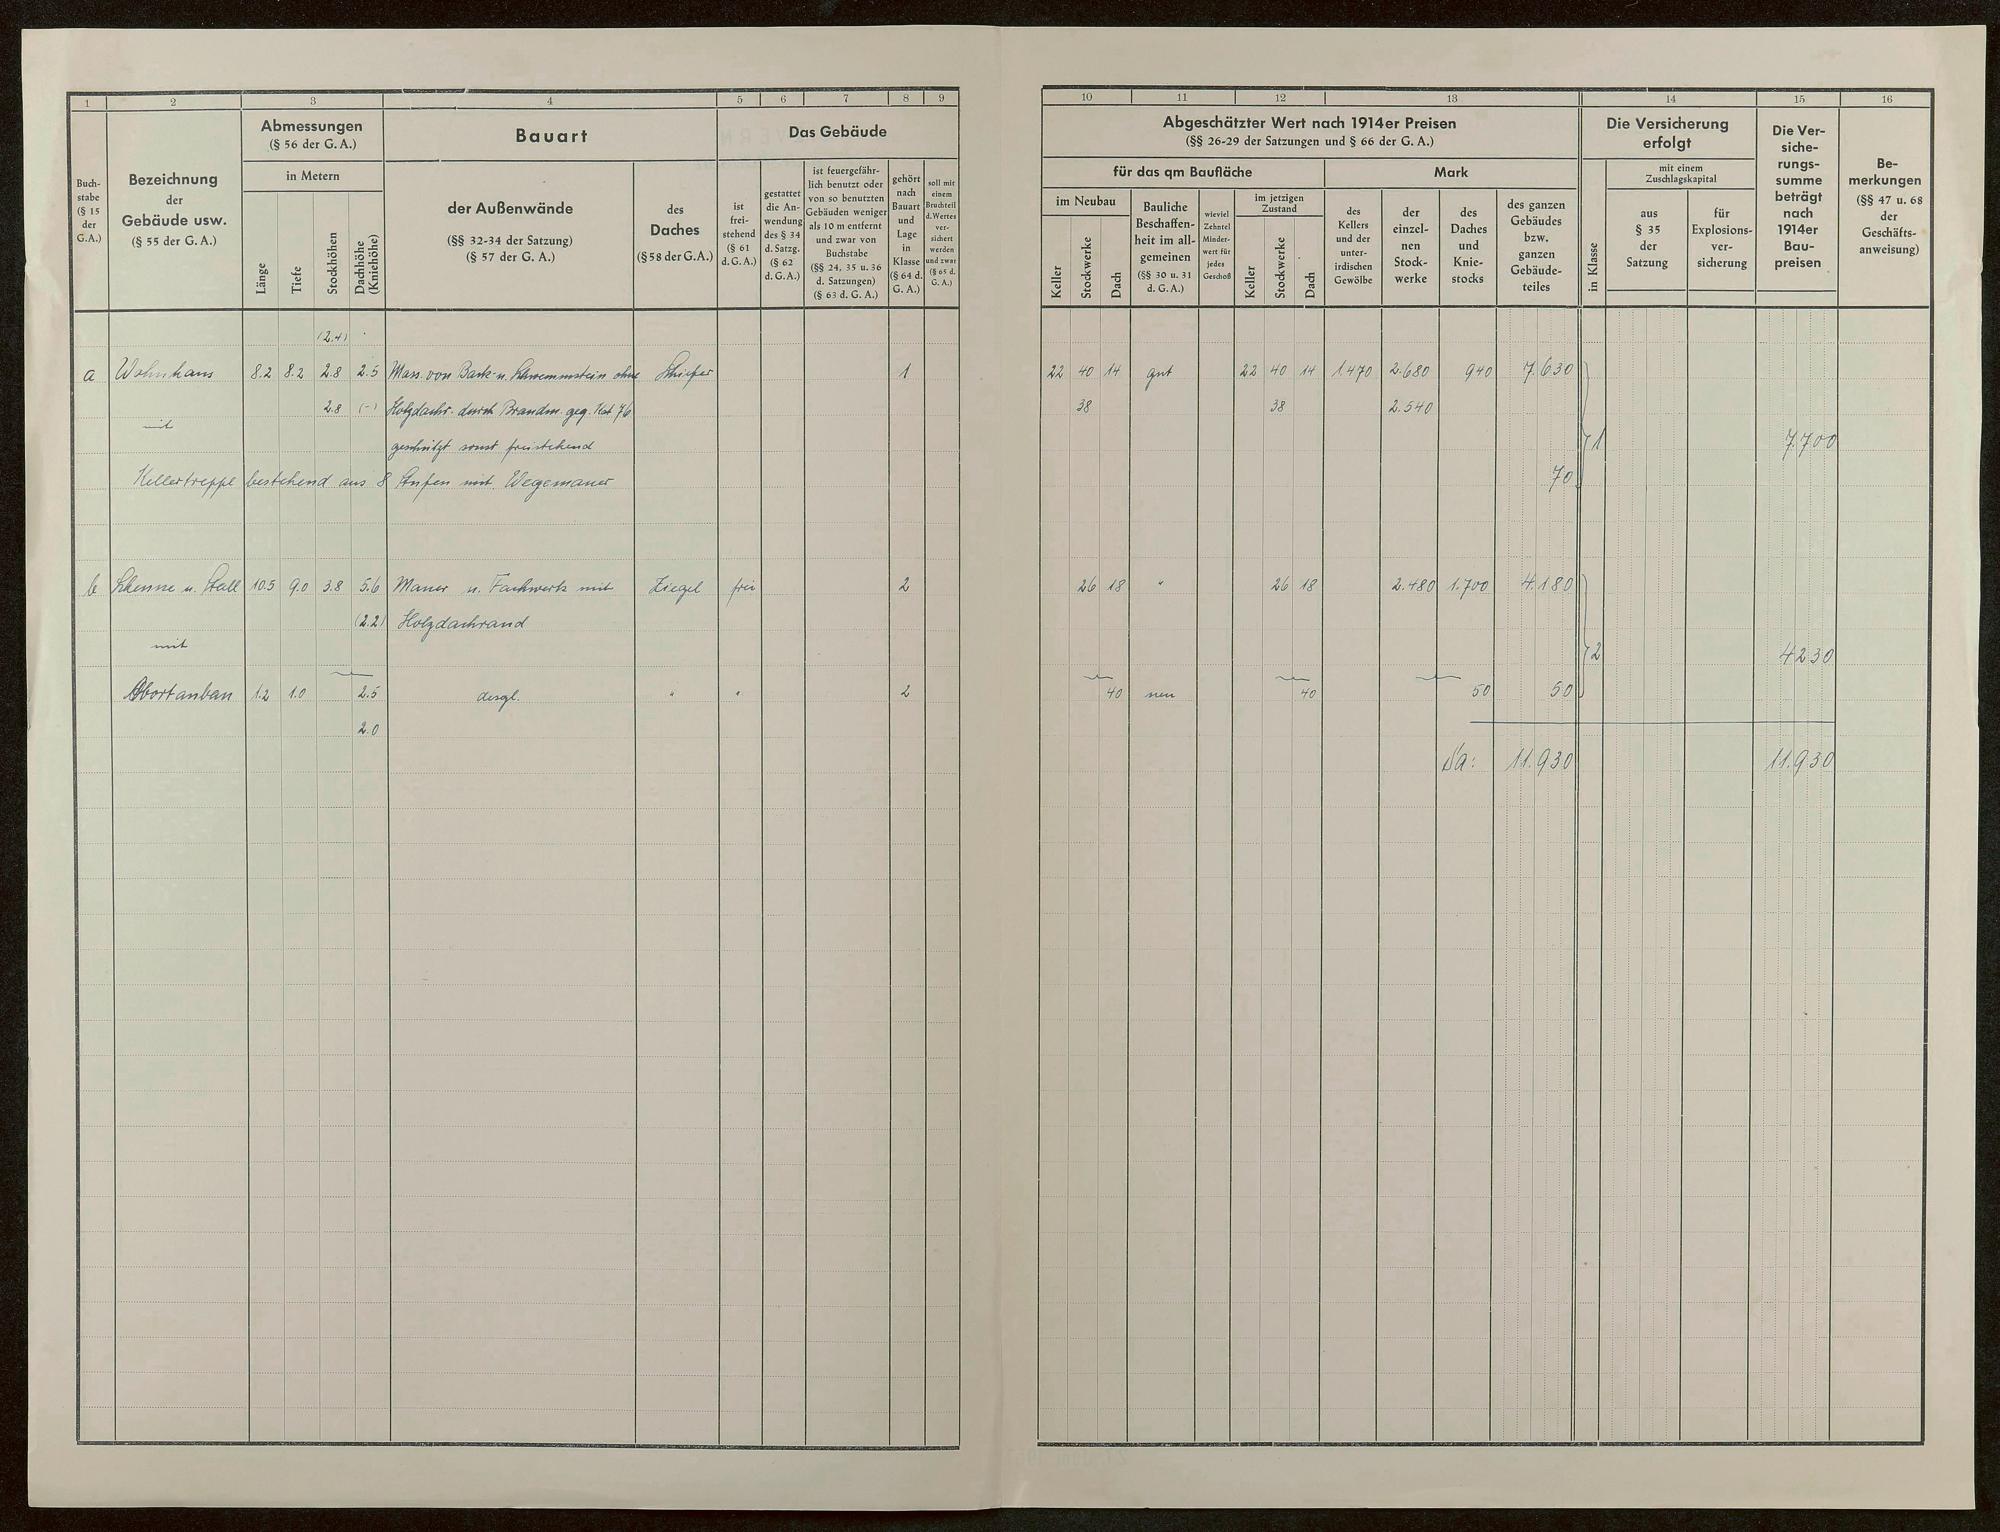 1 2 3 4 5 6 7 8 9
Buch-
stabe
(§ 15
der
G.A.)
Bezeichnung
der
Gebäude usw.
(§ 55 der G. A.)
Abmessungen
(§ 56 der G. A.)
in Metern
Länge
Tiefe
Stockhöhen
Dachhöhe
(Kniehöhe)
Bauart
der Außenwände
(§§ 32-34 der Satzung)
(§ 57 der G. A.)
des
Daches
(§ 58 der G. A.)
Das Gebäude
ist
frei-
stehend
(§ 61
d. G. A.)
gestattet
die An-
wendung
des § 34
d. Satzg.
(§ 62
d. G. A.)
ist feuergefähr-
lich benutzt oder
von so benutzten
Gebäuden weniger
als 10 m entfernt
und zwar von
Buchstabe
(§§ 24, 35 u. 36
d. Satzungen)
(§ 63 d. G. A.)
gehört
nach
Bauart
und
Lage
in
Klasse
(§ 64 d.
G. A.)
soll mit
einem
Bruchteil
d. Wertes
ver-
sichert
werden
und zwar
(§ 65 d.
G. A.)
(2.4)
a Wohnhaus 8.2 8.2 2.8 2.5 Mass. von Back- u. Schwemmstein ohne Schiefer 1
2.8 (-) Holzdachr. durch Brandm. geg. Nat 76
mit
geschützt sonst freistehend
Kellertreppe bestehend aus 8 Stufen mit Wegemauer
b Scheune u. Stall 10.5 9.0 3.8 5.6 Mauer u. Fachwerk mit Ziegel frei 2
(2.2) Holzdachrand
mit
Abortanbau 1.2 1.0 2.5 desgl. " " 2
2.0
10 11 12 13 14 15 16
Abgeschätzter Wert nach 1914er Preisen
(§§ 26-29 der Satzungen und § 66 der G. A.)
für das qm Baufläche
Mark
im Neubau
Keller
Stockwerke
Dach
Bauliche
Beschaffen-
heit im all-
gemeinen
(§§ 30 u. 31
d. G. A.)
wieviel
Zehntel
Minder-
wert für
jedes
Geschoß
im jetzigen
Zustand
Keller
Stockwerke
Dach
des
Kellers
und der
unter-
irdischen
Gewölbe
der
einzel-
nen
Stock-
werke
des
Daches
und
Knie-
stocks
des ganzen
Gebäudes
bzw.
ganzen
Gebäude-
teiles
Die Versicherung
erfolgt
in Klasse
mit einem
Zuschlagskapital
aus
§ 35
der
Satzung
für
Explosions-
ver-
sicherung
Die Ver-
siche-
rungs-
summe
beträgt
nach
1914er
Bau-
preisen
Be-
merkungen
(§§ 47 u. 68
der
Geschäfts-
anweisung)
22 40 14 gut 22 40 14 1.470 2.680 940 7.630
38 38 2.540
1 7.700
70
26 18 " 26 18 2.480 1.700 4.180
2 4230
40 neu 40 50 50
Sa: 11.930 11.930